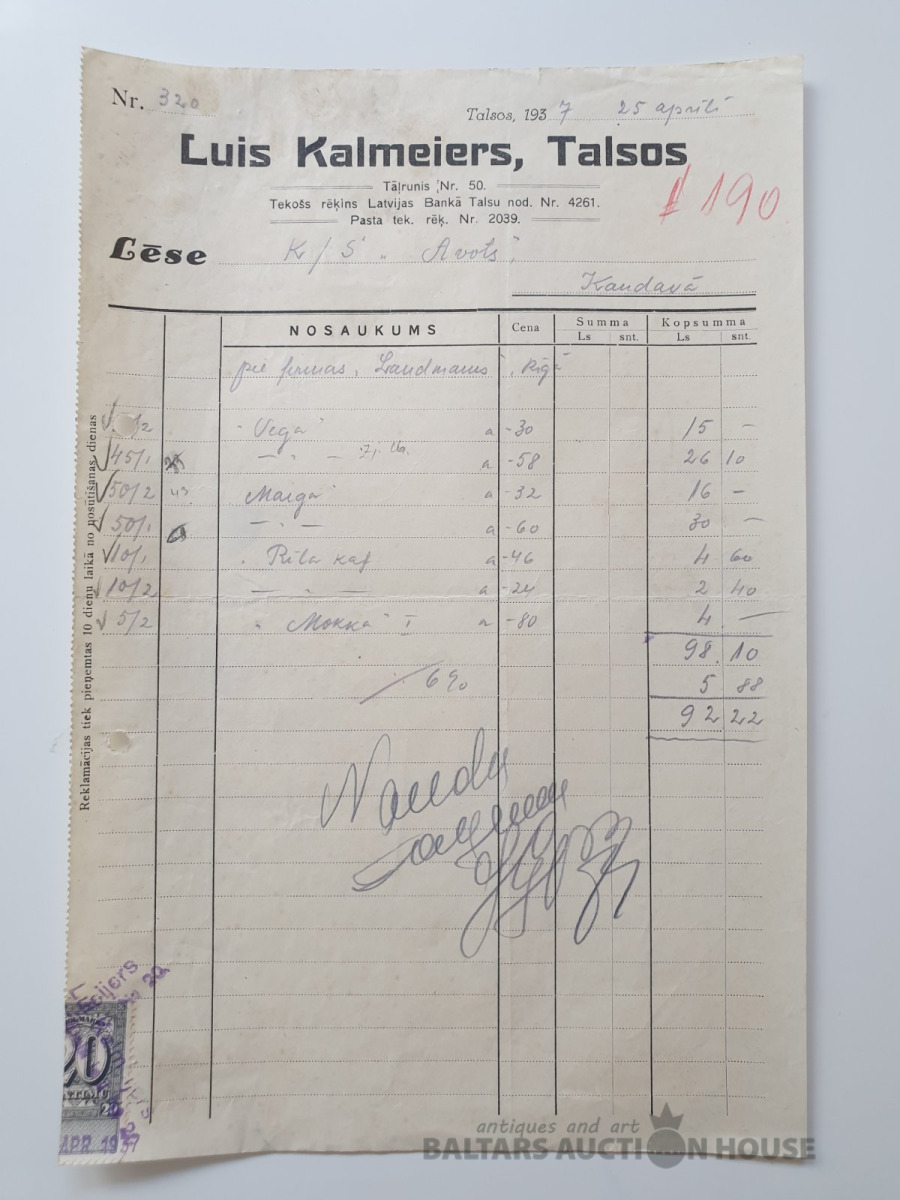 Nr. 320
Talsos, 1937 25 aprīlī
Luis Kalmeiers, Talsos
Tāļrunis Nr. 50.
Tekošs rēķins Latvijas Bankā Talsu nod. Nr. 4261.
Pasta tek. rēķ. Nr. 2039.
190
Lēse K/S „Avots”,
Kandavā
NOSAUKUMS Cena Summa Kopsumma
Ls snt. Ls snt.
pie firmas, Landmanis, Rīgā
/2 "Vega" a -30 15 —
45/1 — " — a -58 26 10
50/2 43 Maiga a -32 16 —
50/1 — " — a -60 30 —
10/1 " Rīta kaf a -46 4 60
10/2 — " — a -24 2 40
5/2 " Mokka" I a -80 4 —
98.10
./. 6% 5 88
92 22
Naudu
saņēmu
Reklamācijas tiek pieņemtas 10 dienu laikā no nosūtīšanas dienas
20
APR 1937
antiques and art
BALTARS AUCTION HOUSE